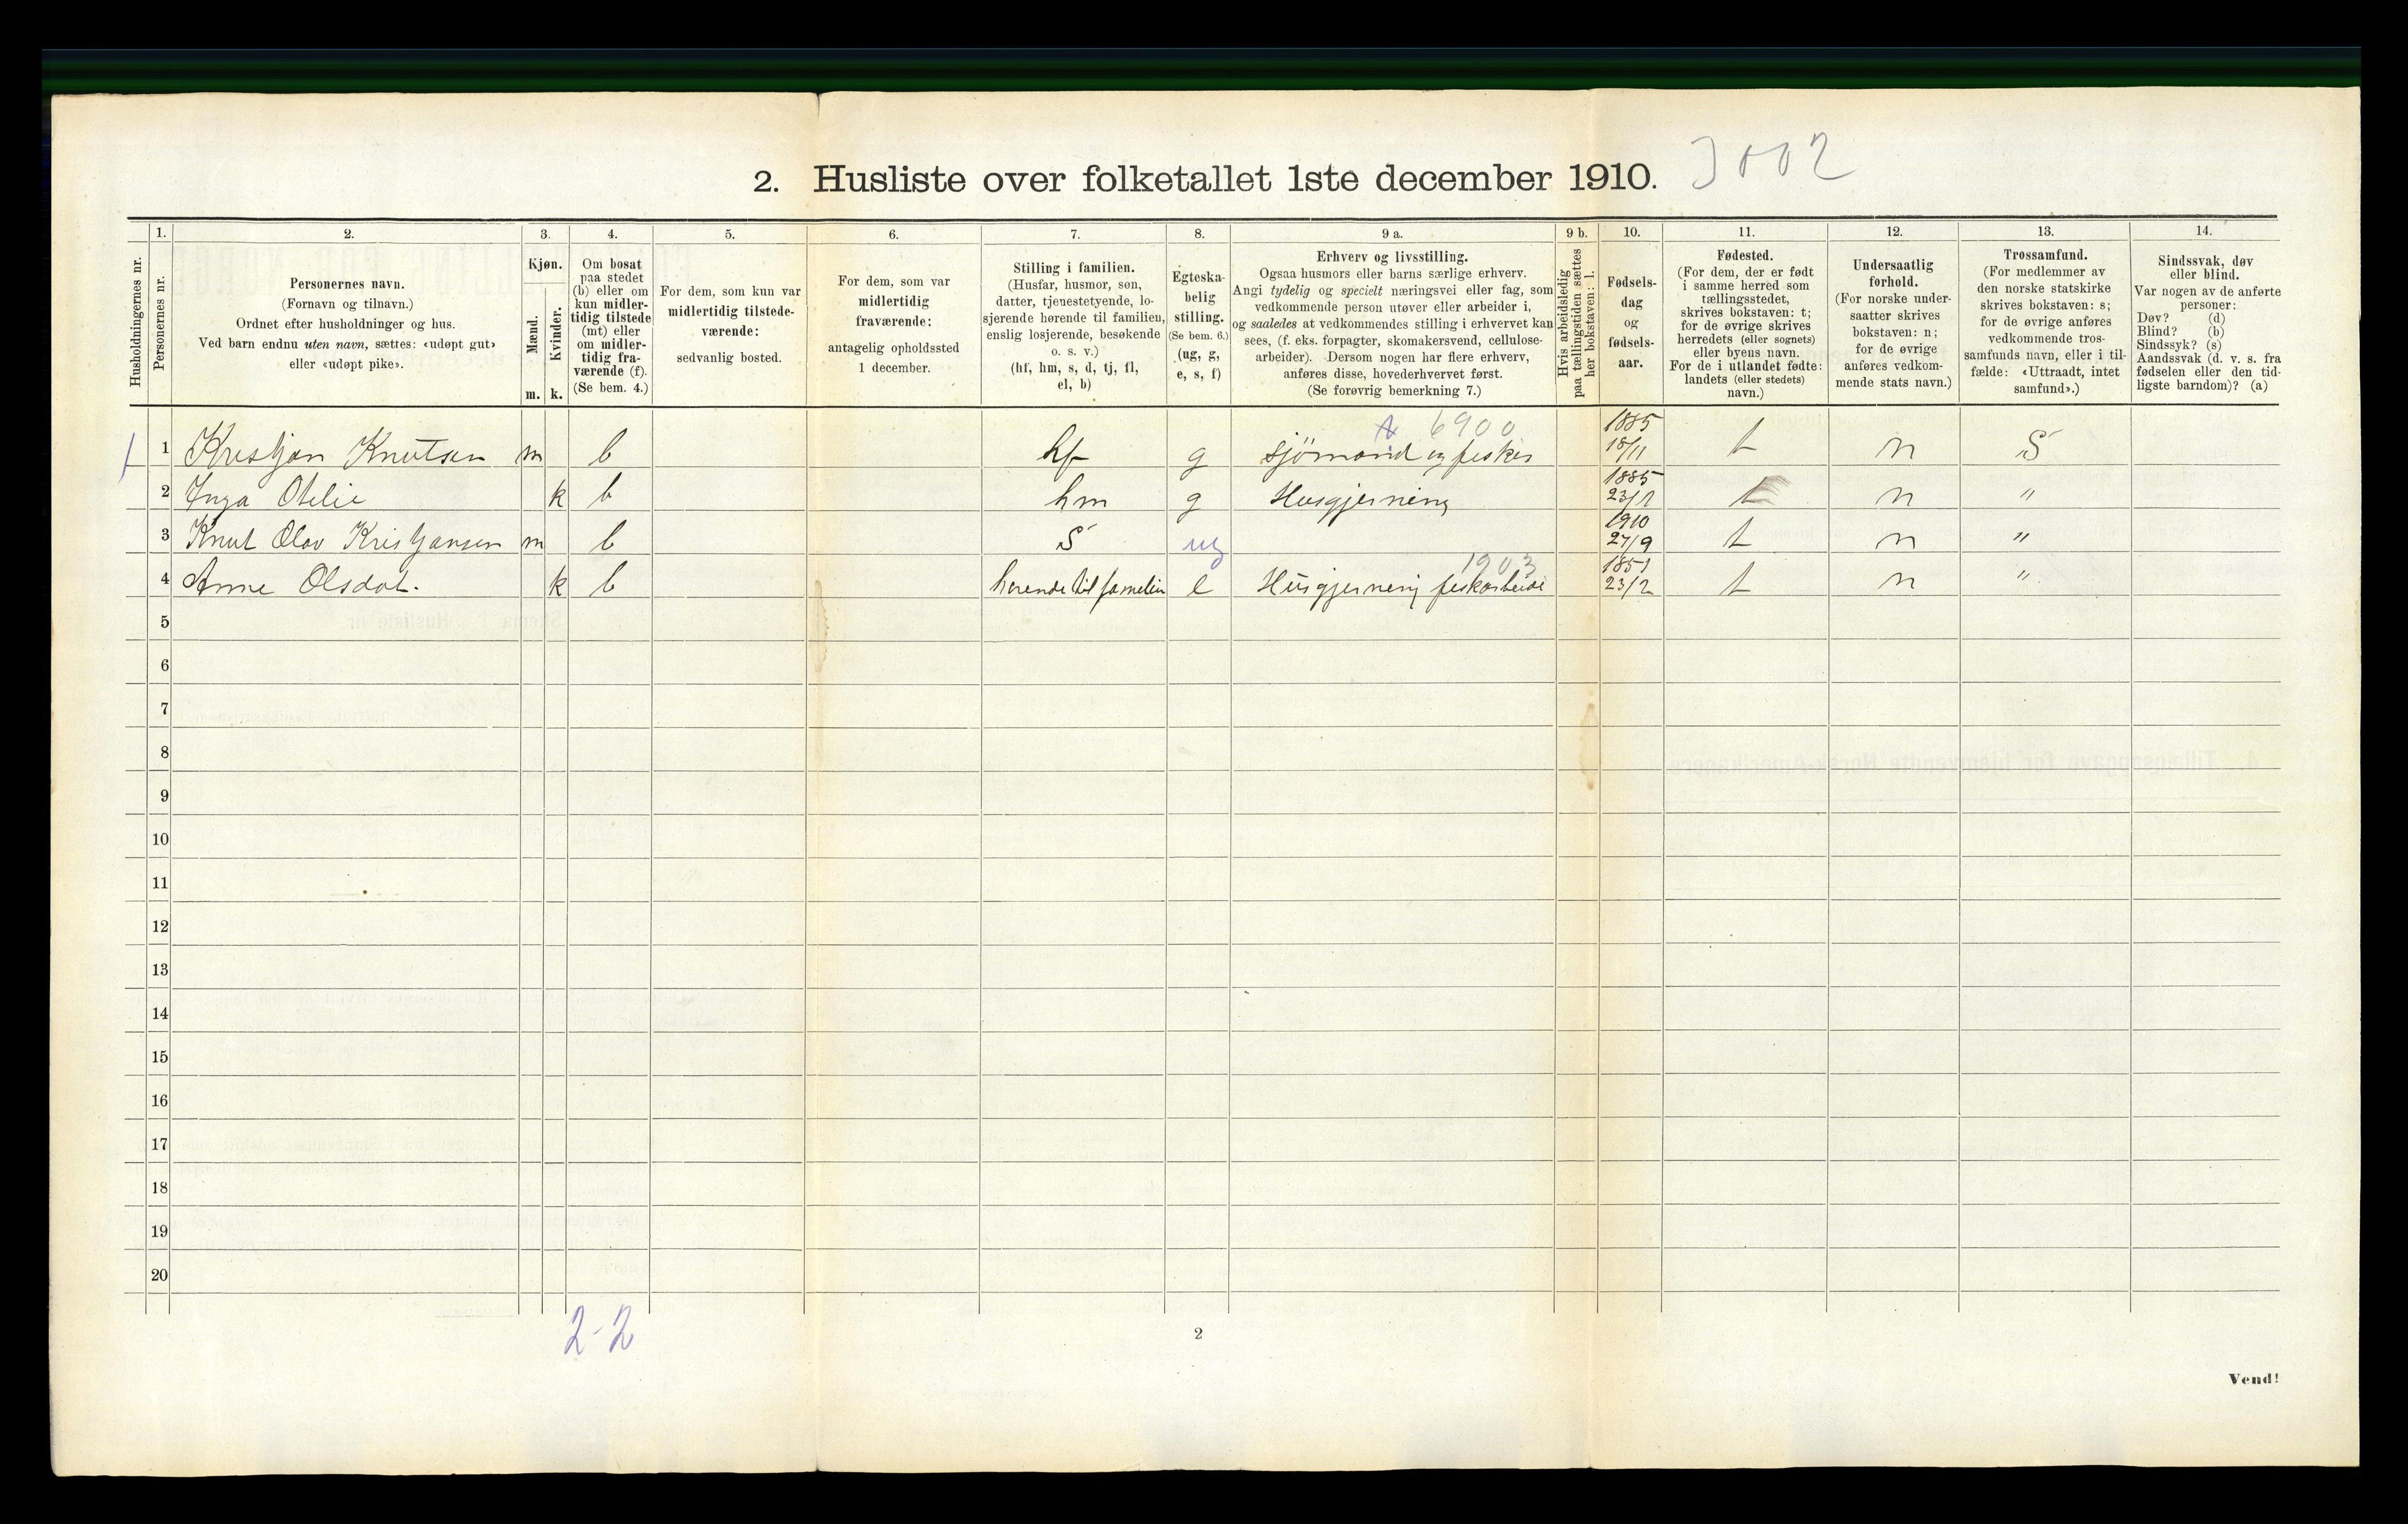 2. Husliste over folketallet 1ste december 1910. 3002
Husholdningernes nr.
1.
Personernes nr.
2.
Personernes navn.
(Fornavn og tilnavn.)
Ordnet efter husholdninger og hus.
Ved barn endnu uten navn, sættes: «udøpt gut»
eller «udøpt pike».
3.
Kjøn.
Mænd.
Kvinder.
m. k.
4.
Om bosat
paa stedet
(b) eller om
kun midler-
tidig tilstede
(mt) eller
om midler-
tidig fra-
værende (f).
(Se bem. 4.)
5.
For dem, som kun var
midlertidig tilstede-
værende:
sedvanlig bosted.
6.
For dem, som var
midlertidig
fraværende:
antagelig opholdssted
1 december.
7.
Stilling i familien.
(Husfar, husmor, søn,
datter, tjenestetyende, lo-
sjerende hørende til familien,
enslig losjerende, besøkende
o. s. v.)
(hf, hm, s, d, tj, fl,
el, b)
8.
Egteska-
belig
stilling.
(Se bem. 6.)
(ug, g,
e, s, f)
9 a.
Erhverv og livsstilling.
Ogsaa husmors eller barns særlige erhverv.
Angi tydelig og specielt næringsvei eller fag, som
vedkommende person utøver eller arbeider i,
og saaledes at vedkommendes stilling i erhvervet kan
sees, (f. eks. forpagter, skomakersvend, cellulose-
arbeider). Dersom nogen har flere erhverv,
anføres disse, hovederhvervet først.
(Se forøvrig bemerkning 7.)
9 b.
Hvis arbeidsledig
paa tællingstiden sættes
her bokstaven: l.
10.
Fødsels-
dag
og
fødsels-
aar.
11.
Fødested.
(For dem, der er født
i samme herred som
tællingsstedet,
skrives bokstaven: t;
for de øvrige skrives
herredets (eller sognets)
eller byens navn.
For de i utlandet fødte:
landets (eller stedets)
navn.)
12.
Undersaatlig
forhold.
(For norske under-
saatter skrives
bokstaven: n;
for de øvrige
anføres vedkom-
mende stats navn.)
13.
Trossamfund.
(For medlemmer av
den norske statskirke
skrives bokstaven: s;
for de øvrige anføres
vedkommende tros-
samfunds navn, eller i til-
fælde: «Uttraadt, intet
samfund».)
14.
Sindssvak, døv
eller blind.
Var nogen av de anførte
personer:
Døv? (d)
Blind? (b)
Sindssyk? (s)
Aandssvak (d. v. s. fra
fødselen eller den tid-
ligste barndom)? (a)
6900
1 Kristjan Knutsen m b hf g sjömand og fisker 1885 18/11 t n S
2 Inga Otelie k b hm g Husgjerning 1885 23/1 t n "
3 Knut Olav Kristjansen m b S ug 1910 27/9 t n "
1903
4 Anne Olsdat. k b hørende til familien e Husgjerning fiskarbeide 1851 23/2 t n "
5
6
7
8
9
10
11
12
13
14
15
16
17
18
19
20
2-2
2
Vend!